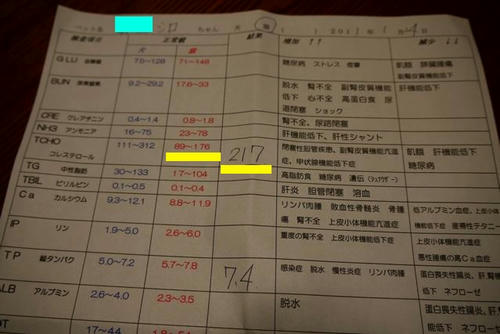 ペット名 シロ ちゃん 犬 猫 2011年 1月
検査項目 正常値 結果 増加 ↑↑ 減少 ↓↓
犬 猫
GLU 血糖値 75-128 71-148 糖尿病 ストレス 飢餓 膵臓腫瘍
副腎皮質機能低下
BUN 9.2-29.2 17.6-33 脱水 腎不全 副腎皮質機能 肝機能低下
低下 心不全 高蛋白食 尿
道閉塞 ショック
CRE クレアチニン 0.4-1.4 0.8-1.8 腎不全、尿路閉塞
NH3 アンモニア 16-75 23-78 肝機能低下、肝性シャント
TCHO 111-312 89-176 217 閉塞性胆管疾患、副腎皮質機能 飢餓 肝機能低下
コレステロール 亢進症、甲状腺機能低下症 糖尿病
TG 中性脂肪 30-133 17-104 高脂肪食 糖尿病 遺伝
TBIL ビリルビン 0.1-0.5 0.1-0.4 肝炎 胆管閉塞 溶血
Ca カルシウム 9.3-12.1 8.8-11.9 リンパ肉腫 敗血症 骨髄炎 骨腫 低アルブミン血症、上皮小体
瘍 腎不全 上皮小体機能亢進症 機能低下症 産褥性テタニー
IP リン 1.9-5.0 2.6-6.0 重度の腎不全 上皮小体機能低下 上皮小体機能亢進症
症 悪性腫瘍の高Ca血症
TP 総タンパク 5.0-7.2 5.7-7.8 7.4 感染症 脱水 慢性炎症 リンパ肉腫 蛋白喪失性腸炎、肝機能
低下 ネフローゼ
ALB アルブミン 2.6-4.0 2.3-3.5 脱水 蛋白喪失性腸炎、肝
低下、ネフローゼ
17-44